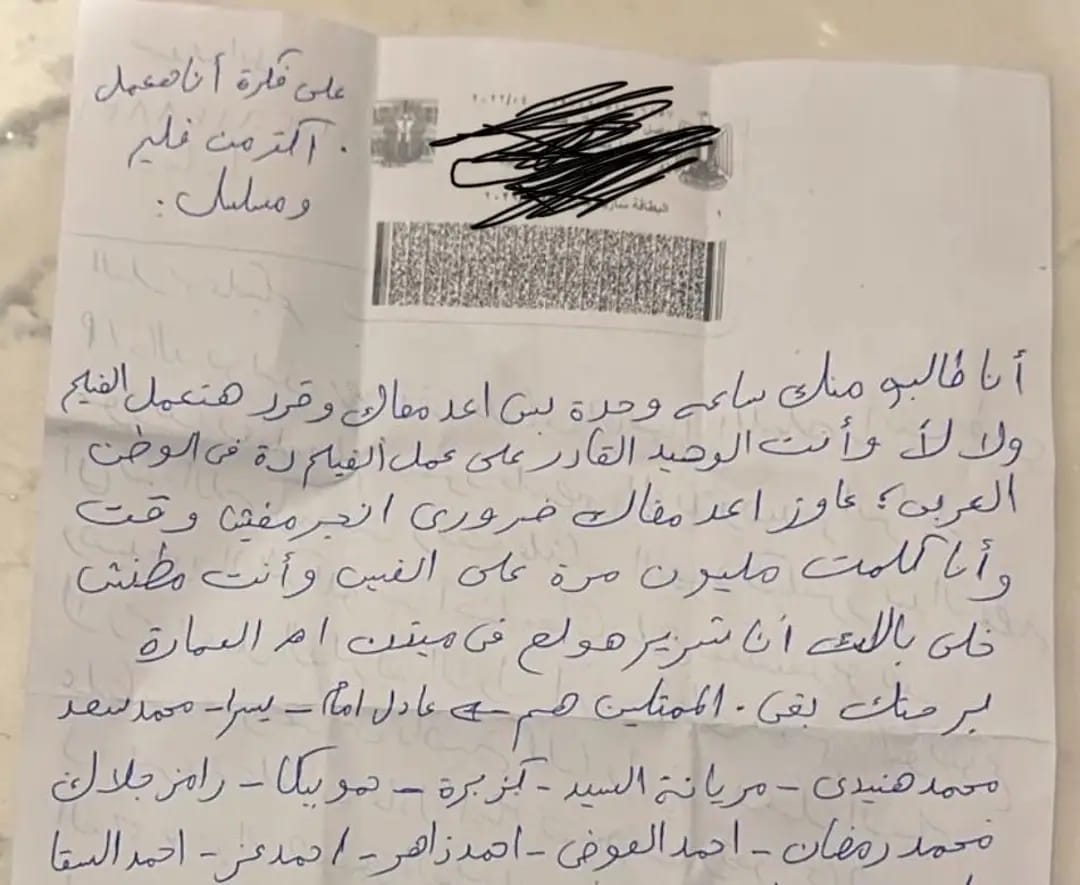 على فكرة أنا هعمل
أكتر من فليم
ومسلسل :
٢٠٢٢/٠٤
البطاقة سارية
أنا طالبو منك ساعه وحدة بس اعد معاك وقرر هتعمل الفيلم
ولا لأ وأنت الوحيد القادر على عمل الفيلم دة فى الوطن
العربى ؛ عاوز اعد معاك ضرورى انجر مفيش وقت
وأنا كلمت مليون مرة على الفيس وأنت مطنش
خلى بالك أنا شرير هولع فى ميتن ام العمارة
براحتك بقى . الممثلين هم عادل امام - يسرا - محمد سعد
محمد هنيدى - مريانة السيد - كزبرة - حمو بيكا - رامز جلال
محمد رمضان - احمد العوضى - احمد زاهر - احمد عز - احمد السقا